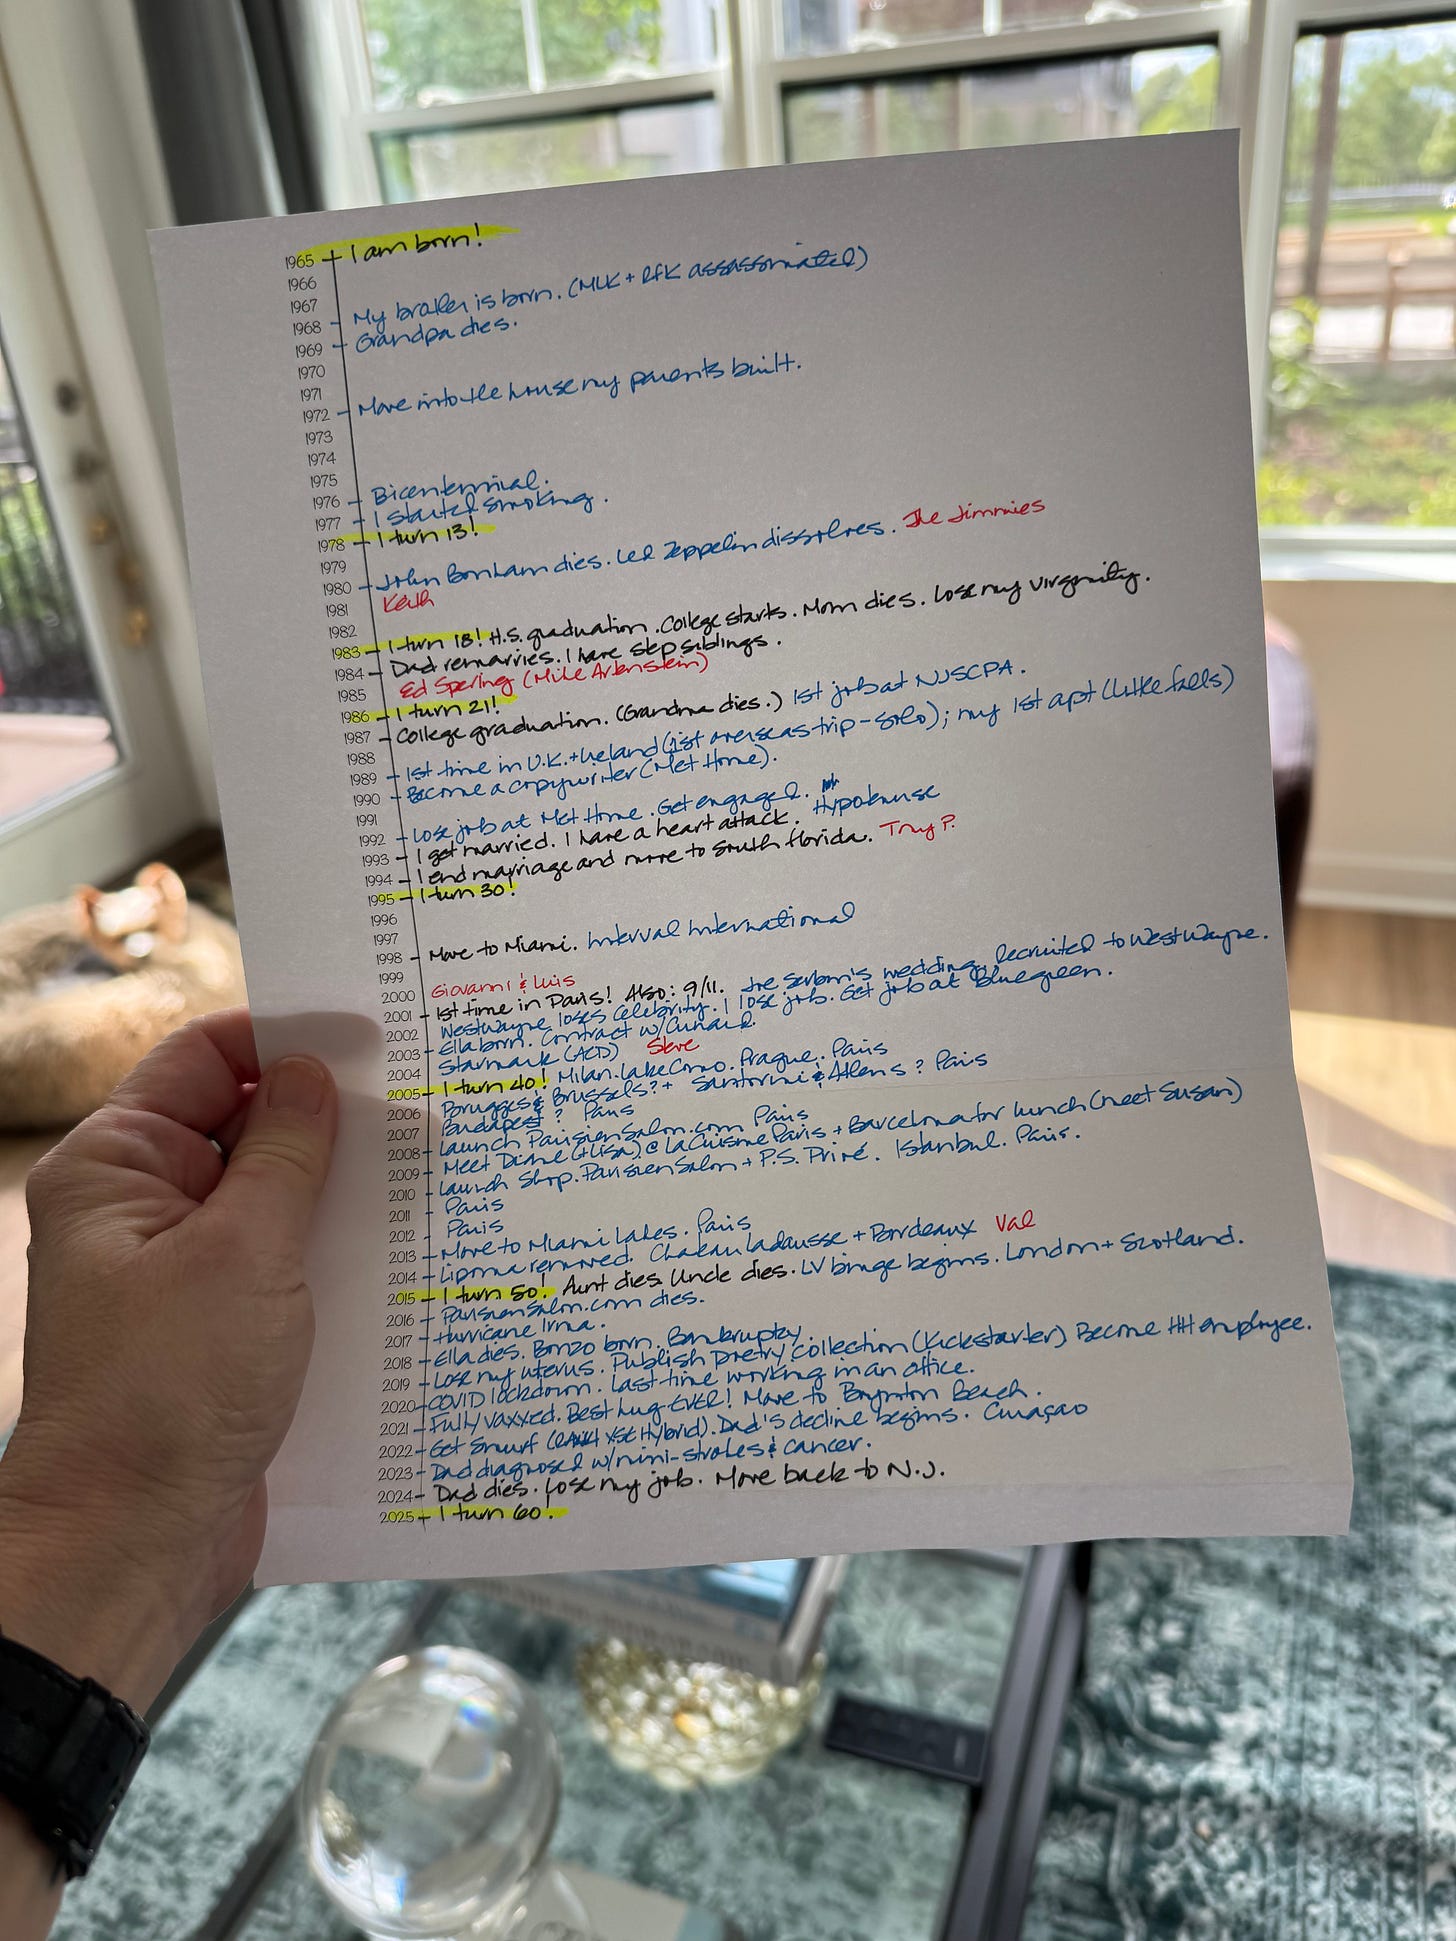 1965 I am born!
1966
1967
1968 My brother is born. (MLK + RFK assassinated)
1969 Grandpa dies.
1970
1971
1972 Move into the house my parents built.
1973
1974
1975
1976 Bicentennial.
1977 I started smoking.
1978 I turn 13!
1979
1980 John Bonham dies. Led Zeppelin dissolves. The Jimmies
1981 Keith
1982
1983 I turn 18! H.S. graduation. College starts. Mom dies. Lose my virginity.
1984 Dad remarries. I have step siblings.
1985 Ed Spering (Mike Arbnstein)
1986 I turn 21!
1987 College graduation. (Grandma dies.) 1st job at NJSCPA.
1988
1989 1st time in U.K. + Ireland (1st overseas trip - solo); my 1st apt (Little Falls)
1990 Become a copywriter (Met Home).
1991
1992 Lose job at Met Home. Get engaged.
1993 I get married. I have a heart attack. Hypotenuse
1994 I end marriage and move to South Florida. Tony P.
1995 I turn 30!
1996
1997
1998 Move to Miami. Interval International
1999
2000 Giovanni & Luis
2001 1st time in Paris! Also: 9/11. Joe Serbin's wedding. Recruited to WestWayne.
2002 WestWayne loses Celebrity. I lose job. Get job at Bluegreen.
2003 Ella born. Contract w/Cunard.
2004 Starmark (ACD) Steve
2005 I turn 40! Milan. Lake Como. Prague. Paris
2006 Brugges & Brussels? + Santorini & Athens? Paris
2007 Budapest? Paris
2008 Launch ParisienSalon.com Paris
2009 Meet Diane (+ Lisa) @ La Cuisine Paris + Barcelona for lunch (meet Susan)
2010 Launch Shop.ParisienSalon + P.S. Privé. Istanbul. Paris.
2011 Paris
2012 Paris
2013 Move to Miami Lakes. Paris
2014 Lipoma removed. Chateau Ladausse + Bordeaux Val
2015 I turn 50! Aunt dies. Uncle dies. LV binge begins. London + Scotland.
2016 ParisienSalon.com dies.
2017 Hurricane Irma.
2018 Ella dies. Bonzo born. Bankruptcy.
2019 Lose my uterus. Publish poetry collection (Kickstarter) Become HH employee.
2020 COVID lockdown. Last time working in an office.
2021 Fully vaxxed. Best hug EVER! Move to Boynton Beach.
2022 Get Smurf ( XSE Hybrid). Dad's decline begins. Curaçao
2023 Dad diagnosed w/mini-strokes & cancer.
2024 Dad dies. Lose my job. Move back to N.J.
2025 I turn 60!